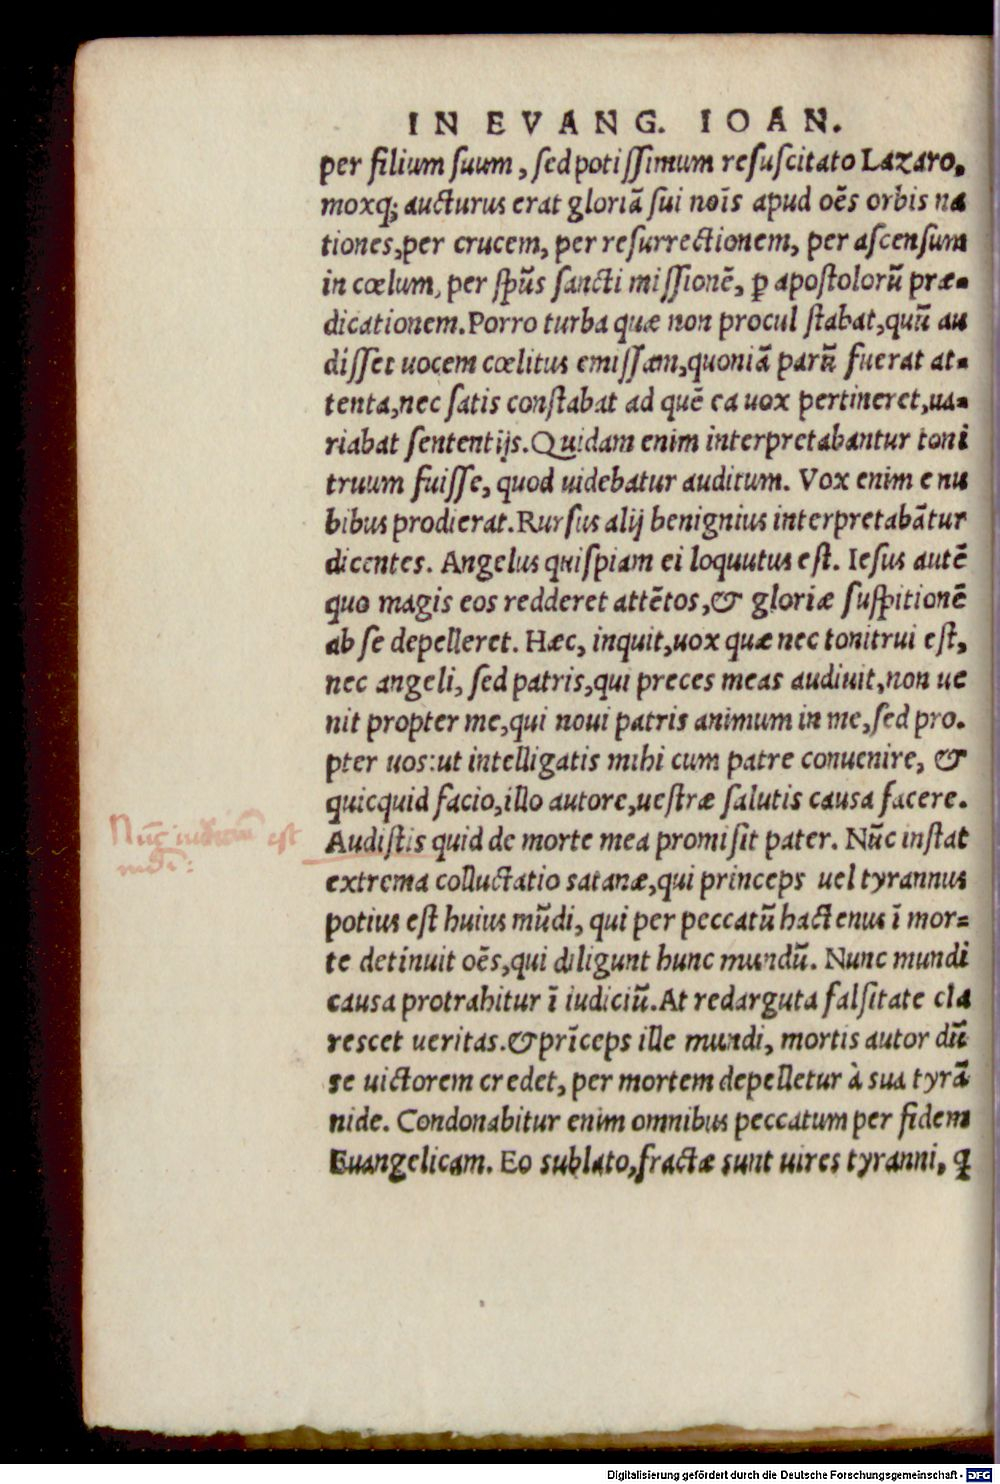 IN EVANG. IOAN.
per filium suum, sed potissimum resuscitato Lazaro,
moxq; aucturus erat gloriā sui nōis apud oēs orbis na
tiones, per crucem, per resurrectionem, per ascensum
in cœlum, per spūs sancti missionē, ꝑ apostolorū præ-
dicationem. Porro turba quæ non procul stabat, quū au
disset uocem cœlitus emissam, quoniā parū fuerat at-
tenta, nec satis constabat ad quē ea uox pertineret, ua-
riabat sententijs. Quidam enim interpretabantur toni
truum fuisse, quod uidebatur auditum. Vox enim e nu
bibus prodierat. Rursus alij benignius interpretabātur
dicentes. Angelus quispiam ei loquutus est. Iesus autē
quo magis eos redderet attētos, & gloriæ suspitionē
ab se depelleret. Hæc, inquit, uox quæ nec tonitrui est,
nec angeli, sed patris, qui preces meas audiuit, non ue
nit propter me, qui noui patris animum in me, sed pro.
pter uos: ut intelligatis mihi cum patre conuenire, &
quicquid facio, illo autore, uestræ salutis causa facere.
Nūc iudicium est
mūdi:
Audistis quid de morte mea promisit pater. Nūc instat
extrema colluctatio satanæ, qui princeps uel tyrannus
potius est huius mūdi, qui per peccatū hactenus ī mor-
te detinuit oēs, qui diligunt hunc mundū. Nunc mundi
causa protrahitur ī iudiciū. At redarguta falsitate cla
rescet ueritas. & prīceps ille mundi, mortis autor dū
se uictorem credet, per mortem depelletur à sua tyrā
nide. Condonabitur enim omnibus peccatum per fidem
Euangelicam. Eo sublato, fractæ sunt uires tyranni, ꝗ
Digitalisierung gefördert durch die Deutsche Forschungsgemeinschaft - DFG